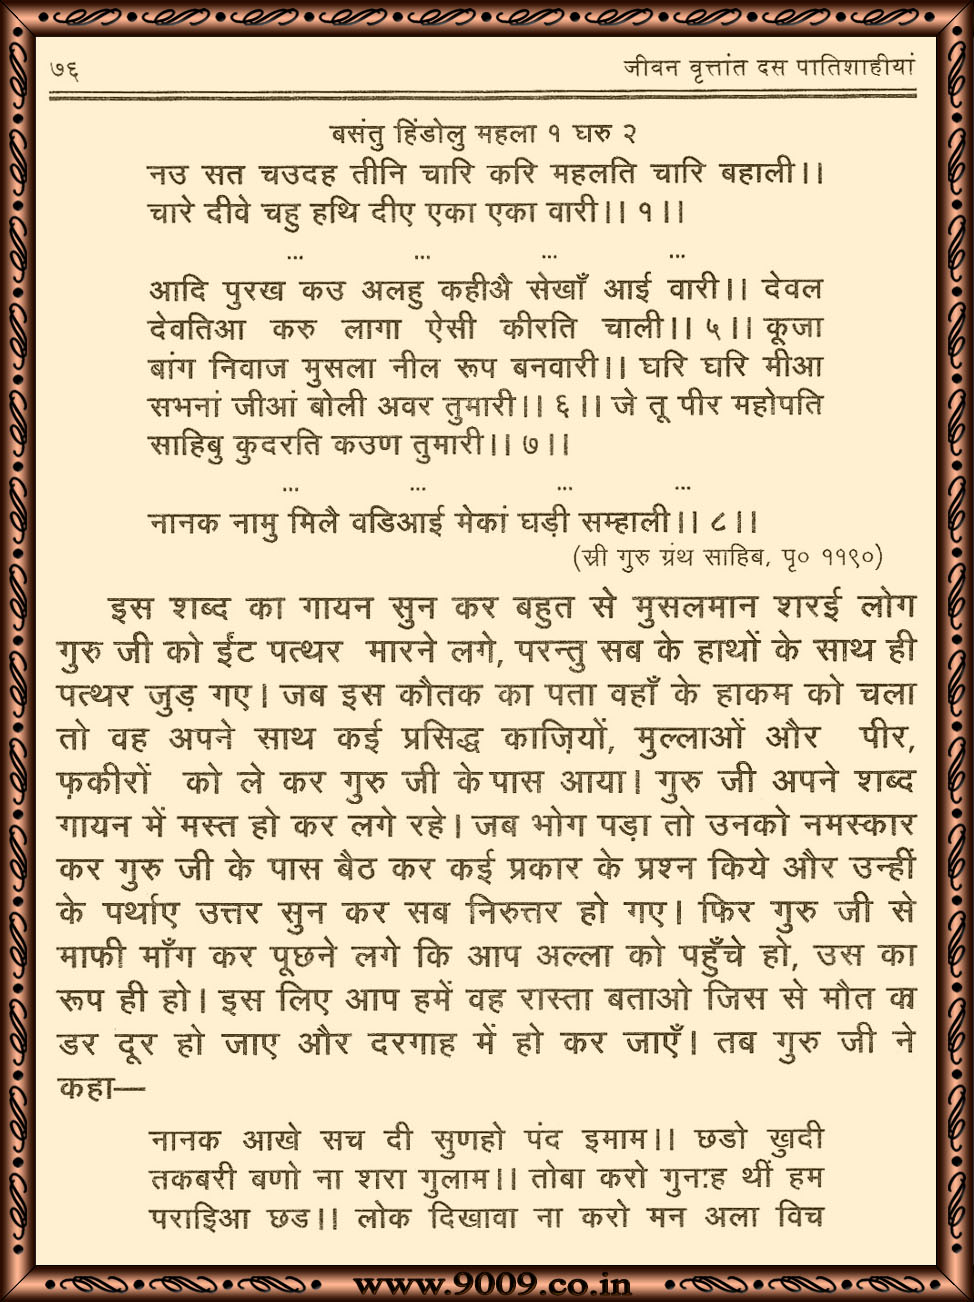 ७६ जीवन वृत्तांत दस पातिशाहीयां
बसंतु हिंडोलु महला १ घरु २
नउ सत चउदह तीनि चारि करि महलति चारि बहाली।।
चारे दीवे चहु हथि दीए एका एका वारी।। १ ।।
... ... ... ...
आदि पुरख कउ अलहु कहीअै सेखाँ आई वारी।। देवल
देवतिआ करु लागा ऐसी कीरति चाली।। ५ ।। कूजा
बांग निवाज मुसला नील रूप बनवारी।। घरि घरि मीआ
सभनां जीआं बोली अवर तुमारी।। ६ ।। जे तू पीर महोपति
साहिबु कुदरति कउण तुमारी।। ७ ।।
... ... ... ...
नानक नामु मिलै वडिआई मेकां घड़ी सम्हाली।। ८ ।।
(स्री गुरु ग्रंथ साहिब, पृ० ११९०)
इस शब्द का गायन सुन कर बहुत से मुसलमान शरई लोग
गुरु जी को ईंट पत्थर मारने लगे, परन्तु सब के हाथों के साथ ही
पत्थर जुड़ गए। जब इस कौतक का पता वहाँ के हाकम को चला
तो वह अपने साथ कई प्रसिद्ध काज़ियों, मुल्लाओं और पीर,
फ़कीरों को ले कर गुरु जी के पास आया। गुरु जी अपने शब्द
गायन में मस्त हो कर लगे रहे। जब भोग पड़ा तो उनको नमस्कार
कर गुरु जी के पास बैठ कर कई प्रकार के प्रश्न किये और उन्हीं
के पर्थाए उत्तर सुन कर सब निरुत्तर हो गए। फिर गुरु जी से
माफी माँग कर पूछने लगे कि आप अल्ला को पहुँचे हो, उस का
रूप ही हो। इस लिए आप हमें वह रास्ता बताओ जिस से मौत का
डर दूर हो जाए और दरगाह में हो कर जाएँ। तब गुरु जी ने
कहा—
नानक आखे सच दी सुणहो पंद इमाम।। छडो खुदी
तकबरी बणो ना शरा गुलाम।। तोबा करो गुनाह थीं हम
पराइिआ छड।। लोक दिखावा ना करो मन अला विच
www.9009.co.in